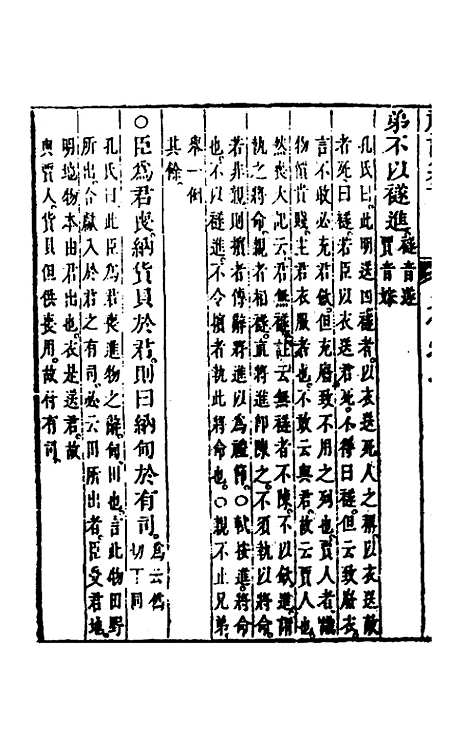 弟不以襚進襚音遂
賈音嫁
孔氏曰此明送四襚者以衣送死人之稱以衣送敵
者死曰襚若臣以衣送君死不得曰襚但云致廢衣
言不敢必充君斂但充廢致不用之列也賈人者識
物價貴賤主君衣服者也不敢云與君故云賈人也
然喪大記云君無襚註云無襚者不陳不以斂進謂
執之將命親者相襚直將進即陳之不須執以將命
若非親則擯者傳辭將進以為禮節○軾按進將命
也不以襚進不令擯者執此將命也○親不止兄弟
舉一例
其餘
○臣為君喪納貨貝於君則曰納甸於有司為云偽
切下同
孔氏曰此臣為君喪進物之辭甸田也言此物田野
所出合獻入於君之有司必云田所出者臣受君地
明地物本由君出也衣是送君故
與賈人貨貝但供喪用故付有司